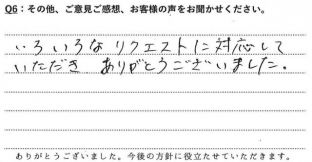 Q6：その他、ご意見ご感想、お客様の声をお聞かせください。
いろいろな リクエストに対応して
いただき ありがとうございました。
ありがとうございました。今後の方針に役立たせていただきます。